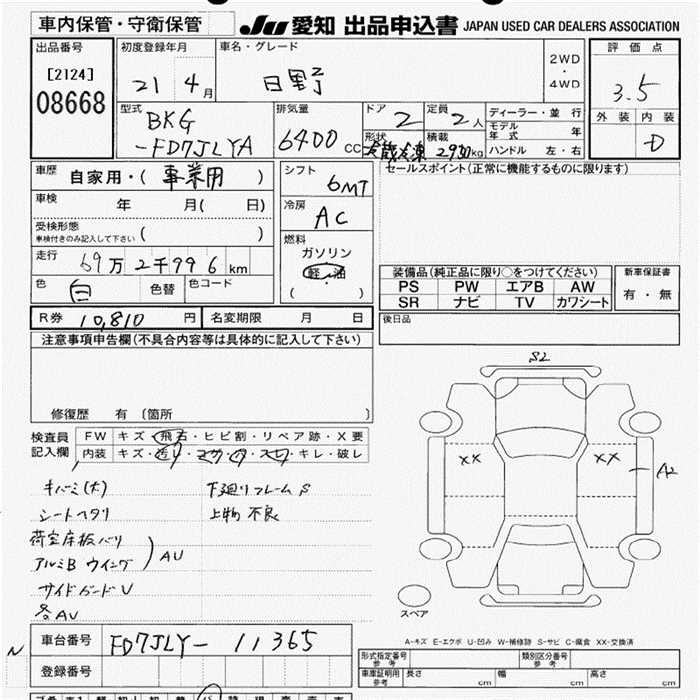 車内保管・守衛保管 JU 愛知 出品申込書 JAPAN USED CAR DEALERS ASSOCIATION
出品番号 初度登録年月 車名・グレード 2WD・4WD 評価点
[2124] 21年 4月 日野 3.5
08668
型式 排気量 ドア 定員 ディーラー・並行 外装 内装
BKG 6400cc 2 2人 モデル年式 年 D
-FD7JLYA 形状 積載 ハンドル 左・右
冷蔵冷凍 2930kg
車歴 自家用・(事業用) シフト 6MT セールスポイント(正常に機能するものに限ります)
車検 年 月( 日) 冷房 AC
受検形態 ( )
車検付きのみ記入して下さい
燃料 ガソリン
走行 69万2千996km 軽・油
( )
色 白 色替 色コード
装備品(純正品に限り○をつけてください) 新車保証書
PS PW エアB AW 有・無
SR ナビ TV カワシート
R券 10,810円 名変期限 月 日 後日品
注意事項申告欄(不具合内容等は具体的に記入して下さい)
修復歴 有 [箇所 ]
S2
検査員記入欄 FW キズ・飛石・ヒビ割・リペア跡・X要
内装 キズ・汚れ・コゲ・穴・スレ・キレ・破レ
XX XX A2
キバミ(大) 下廻りフレームS
シートヘタリ 上物不良
荷室床板バリ
アルミB ウイング ) AU
サイドガードU
各AU
スペア
A-キズ E-エクボ U-凹み W-補修跡 S-サビ C-腐食 XX-交換済
N
車台番号 FD7JLY-11365
登録番号
形式指定番号 参考 類別区分番号 参考
車庫証明用 参考 長さ cm 幅 cm 高さ cm